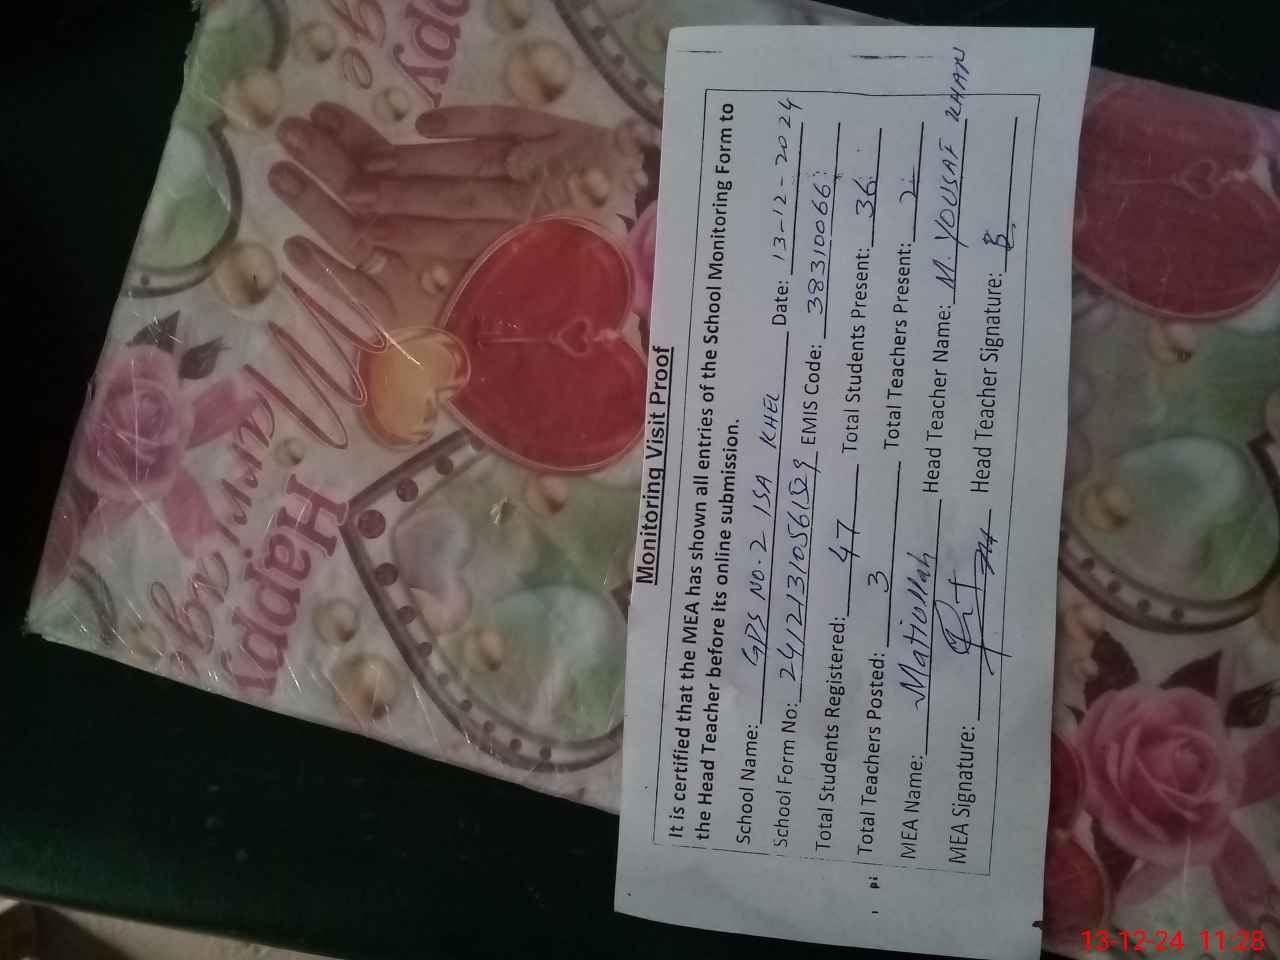 Monitoring Visit Proof
It is certified that the MEA has shown all entries of the School Monitoring Form to
the Head Teacher before its online submission.
School Name: GPS NO.2 ISA KHEL Date: 13-12-2024
School Form No: EMIS Code: 38310066
Total Students Registered: 47 Total Students Present: 36
Total Teachers Posted: 3 Total Teachers Present: 2
MEA Name: Matiullah Head Teacher Name: M. YOUSAF KHAN
MEA Signature: Head Teacher Signature:
Happy
Marriage
ppy
ge
13-12-24 11:28